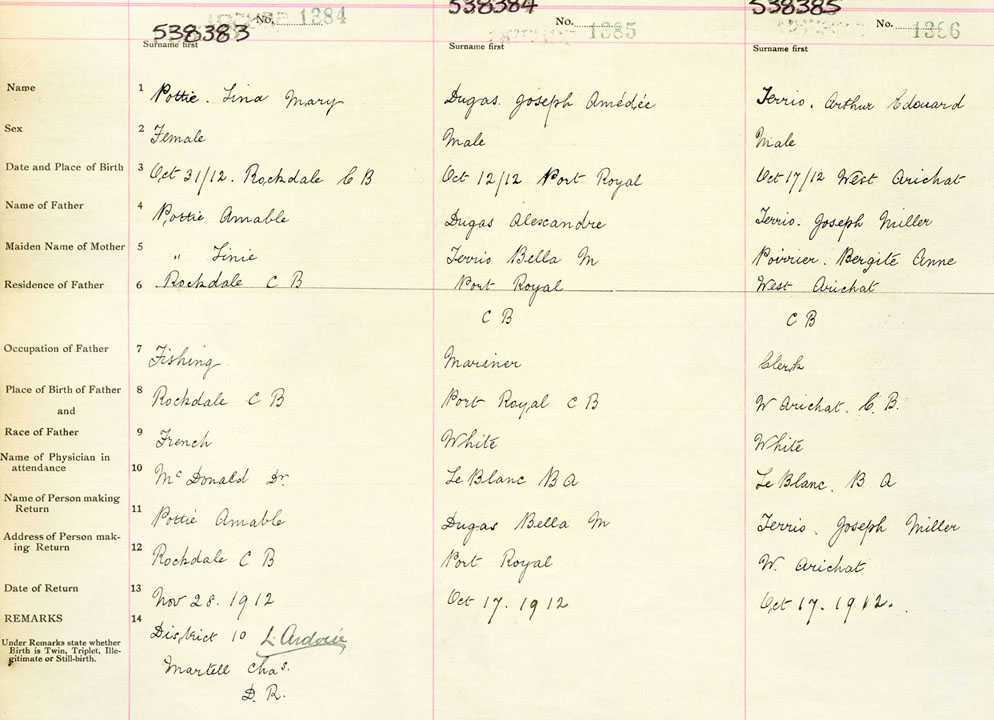 538383 No. 1384 538384 No. 1385 538385 No. 1386
Surname first Surname first Surname first
Name 1 Pottie. Lina Mary Dugas. Joseph Amédée Terrio. Arthur Edouard
Sex 2 Female Male Male
Date and Place of Birth 3 Oct 31/12. Rockdale C B Oct 12/12 Port Royal Oct 17/12 West Arichat
Name of Father 4 Pottie Amable Dugas Alexandre Terrio. Joseph Miller
Maiden Name of Mother 5 " Linie Terrio Bella M Poirrier. Bergite Anne
Residence of Father 6 Rockdale C B Port Royal West Arichat
C B C B
Occupation of Father 7 Fishing Mariner Clerk
Place of Birth of Father 8 Rockdale C B Port Royal C B W Arichat. C. B.
and
Race of Father 9 French White White
Name of Physician in
attendance 10 Mc Donald Dr. Le Blanc B A Le Blanc. B A
Name of Person making
Return 11 Pottie Amable Dugas Bella M Terrio. Joseph Miller
Address of Person mak-
ing Return 12 Rockdale C B Port Royal W. Arichat
Date of Return 13 Nov 28. 1912 Oct 17. 1912 Oct 17. 1912.
REMARKS 14 District 10 L'Ardoise
Under Remarks state whether
Birth is Twin, Triplet, Ille-
gitimate or Still-birth.
Martell Chas.
D. R.